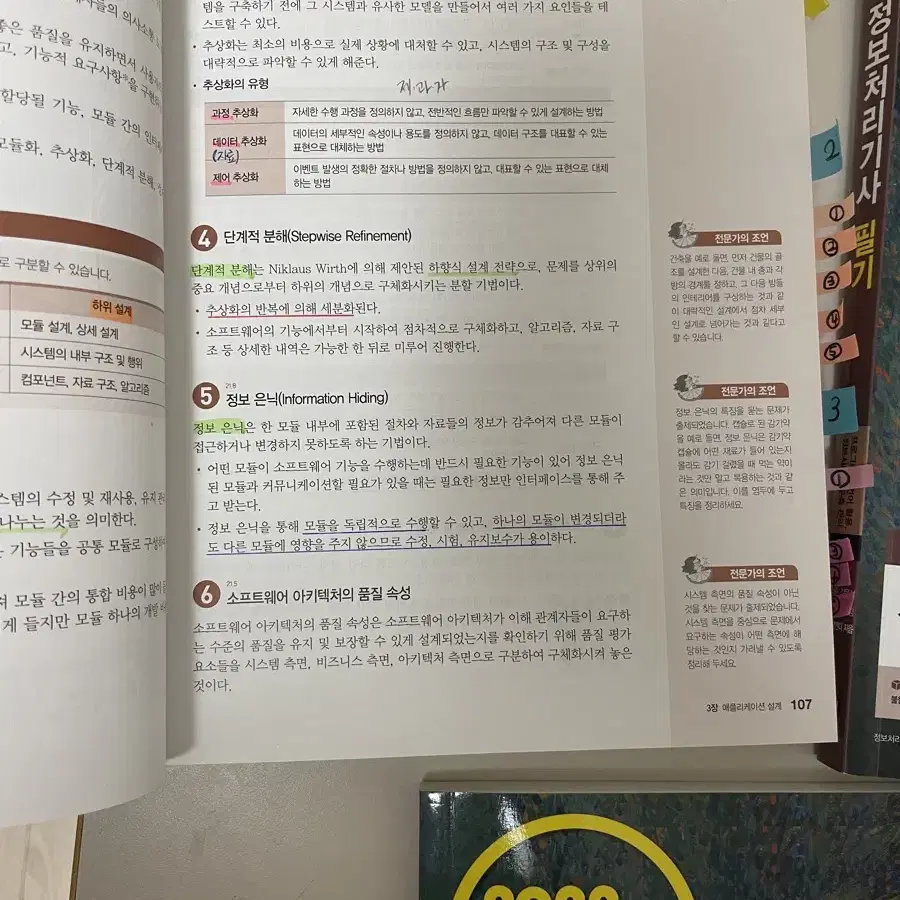 자들의 의사소통
좋은 품질을 유지하면서 사용
고, 기능적 요구사항*을 구현
할당될 기능, 모듈 간의 인터
모듈화, 추상화, 단계적 분해,
로 구분할 수 있습니다.
하위 설계
모듈 설계, 상세 설계
시스템의 내부 구조 및 행위
컴포넌트, 자료 구조, 알고리즘
스템의 수정 및 재사용, 유지
나누는 것을 의미한다.
기능들을 공통 모듈로 구성
져 모듈 간의 통합 비용이 많이
게 들지만 모듈 하나의 개발
템을 구축하기 전에 그 시스템과 유사한 모델을 만들어서 여러 가지 요인들을 테
스트할 수 있다.
• 추상화는 최소의 비용으로 실제 상황에 대처할 수 있고, 시스템의 구조 및 구성을
대략적으로 파악할 수 있게 해준다.
• 추상화의 유형
제·과·자
과정 추상화 자세한 수행 과정을 정의하지 않고, 전반적인 흐름만 파악할 수 있게 설계하는 방법
데이터 추상화 데이터의 세부적인 속성이나 용도를 정의하지 않고, 데이터 구조를 대표할 수 있는
(자료) 표현으로 대체하는 방법
제어 추상화 이벤트 발생의 정확한 절차나 방법을 정의하지 않고, 대표할 수 있는 표현으로 대체
하는 방법
4 단계적 분해(Stepwise Refinement)
단계적 분해는 Niklaus Wirth에 의해 제안된 하향식 설계 전략으로, 문제를 상위의
중요 개념으로부터 하위의 개념으로 구체화시키는 분할 기법이다.
• 추상화의 반복에 의해 세분화된다.
• 소프트웨어의 기능에서부터 시작하여 점차적으로 구체화하고, 알고리즘, 자료 구
조 등 상세한 내역은 가능한 한 뒤로 미루어 진행한다.
21.8
5 정보 은닉(Information Hiding)
정보 은닉은 한 모듈 내부에 포함된 절차와 자료들의 정보가 감추어져 다른 모듈이
접근하거나 변경하지 못하도록 하는 기법이다.
• 어떤 모듈이 소프트웨어 기능을 수행하는데 반드시 필요한 기능이 있어 정보 은닉
된 모듈과 커뮤니케이션할 필요가 있을 때는 필요한 정보만 인터페이스를 통해 주
고 받는다.
• 정보 은닉을 통해 모듈을 독립적으로 수행할 수 있고, 하나의 모듈이 변경되더라
도 다른 모듈에 영향을 주지 않으므로 수정, 시험, 유지보수가 용이하다.
21.5
6 소프트웨어 아키텍처의 품질 속성
소프트웨어 아키텍처의 품질 속성은 소프트웨어 아키텍처가 이해 관계자들이 요구하
는 수준의 품질을 유지 및 보장할 수 있게 설계되었는지를 확인하기 위해 품질 평가
요소들을 시스템 측면, 비즈니스 측면, 아키텍처 측면으로 구분하여 구체화시켜 놓은
것이다.
전문가의 조언
건축을 예로 들면, 먼저 건물의 골
조를 설계한 다음, 건물 내 층과 각
방의 경계를 정하고, 그 다음 방들
의 인테리어를 구상하는 것과 같
이 대략적인 설계에서 점차 세부
인 설계로 넘어가는 것과 같다고
할 수 있습니다.
전문가의 조언
정보 은닉의 특징을 묻는 문제가
출제되었습니다. 캡슐로 된 감기약
을 예로 들면, 정보 은닉은 감기약
캡슐에 어떤 재료가 들어 있는지
몰라도 감기 걸렸을 때 먹는 약이
라는 것만 알고 복용하는 것과 같
은 의미입니다. 이를 염두에 두고
특징을 정리하세요.
전문가의 조언
시스템 측면의 품질 속성이 아닌
것을 찾는 문제가 출제되었습니다.
시스템 측면을 중심으로 문제에서
요구하는 속성이 어떤 측면에 해
당하는 것인지 가려낼 수 있도록
정리해 두세요.
3장 애플리케이션 설계 107
정보처리기사 필기
2
①
②
③
④
⑤
3
정보처리